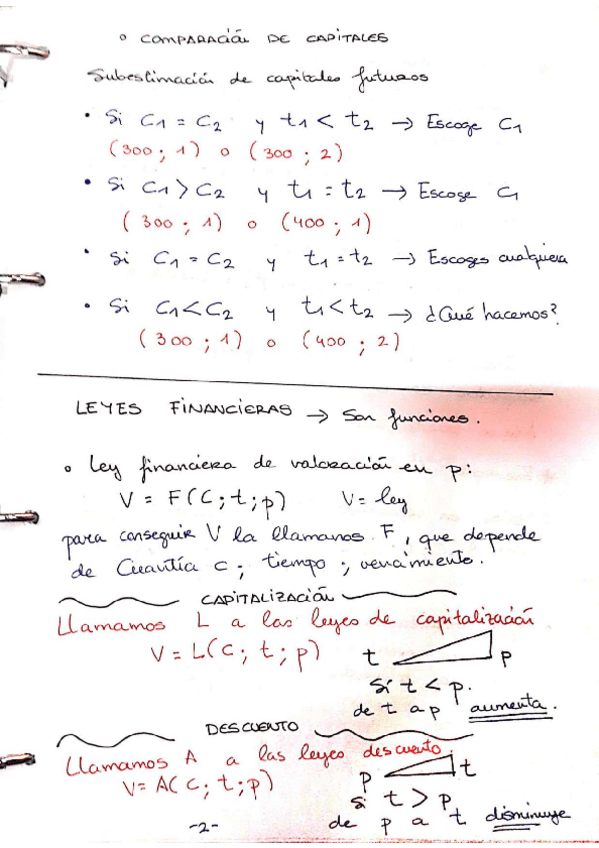 o COMPARACIÓN DE CAPITALES
Subestimación de capitales futuros
• Si C1 = C2 y t1 < t2 → Escoge C1
(300 ; 1) o (300 ; 2)
• Si C1 > C2 y t1 = t2 → Escoge C1
(300 ; 1) o (400 ; 1)
• Si C1 = C2 y t1 = t2 → Escoges cualquiera
• Si C1 < C2 y t1 < t2 → ¿Qué hacemos?
(300 ; 1) o (400 ; 2)
LEYES FINANCIERAS → Son funciones.
o Ley financiera de valoración en p:
V = F(C ; t ; p) V = ley
para conseguir V la llamamos F, que depende
de Cuantía C ; tiempo ; vencimiento.
CAPITALIZACIÓN
Llamamos L a las leyes de capitalización
V = L(C ; t ; p) t p
Si t < p.
de t a p aumenta.
DESCUENTO
Llamamos A a las leyes descuento.
V = A(C ; t ; p) p t
si t > p
de p a t disminuye
-2-